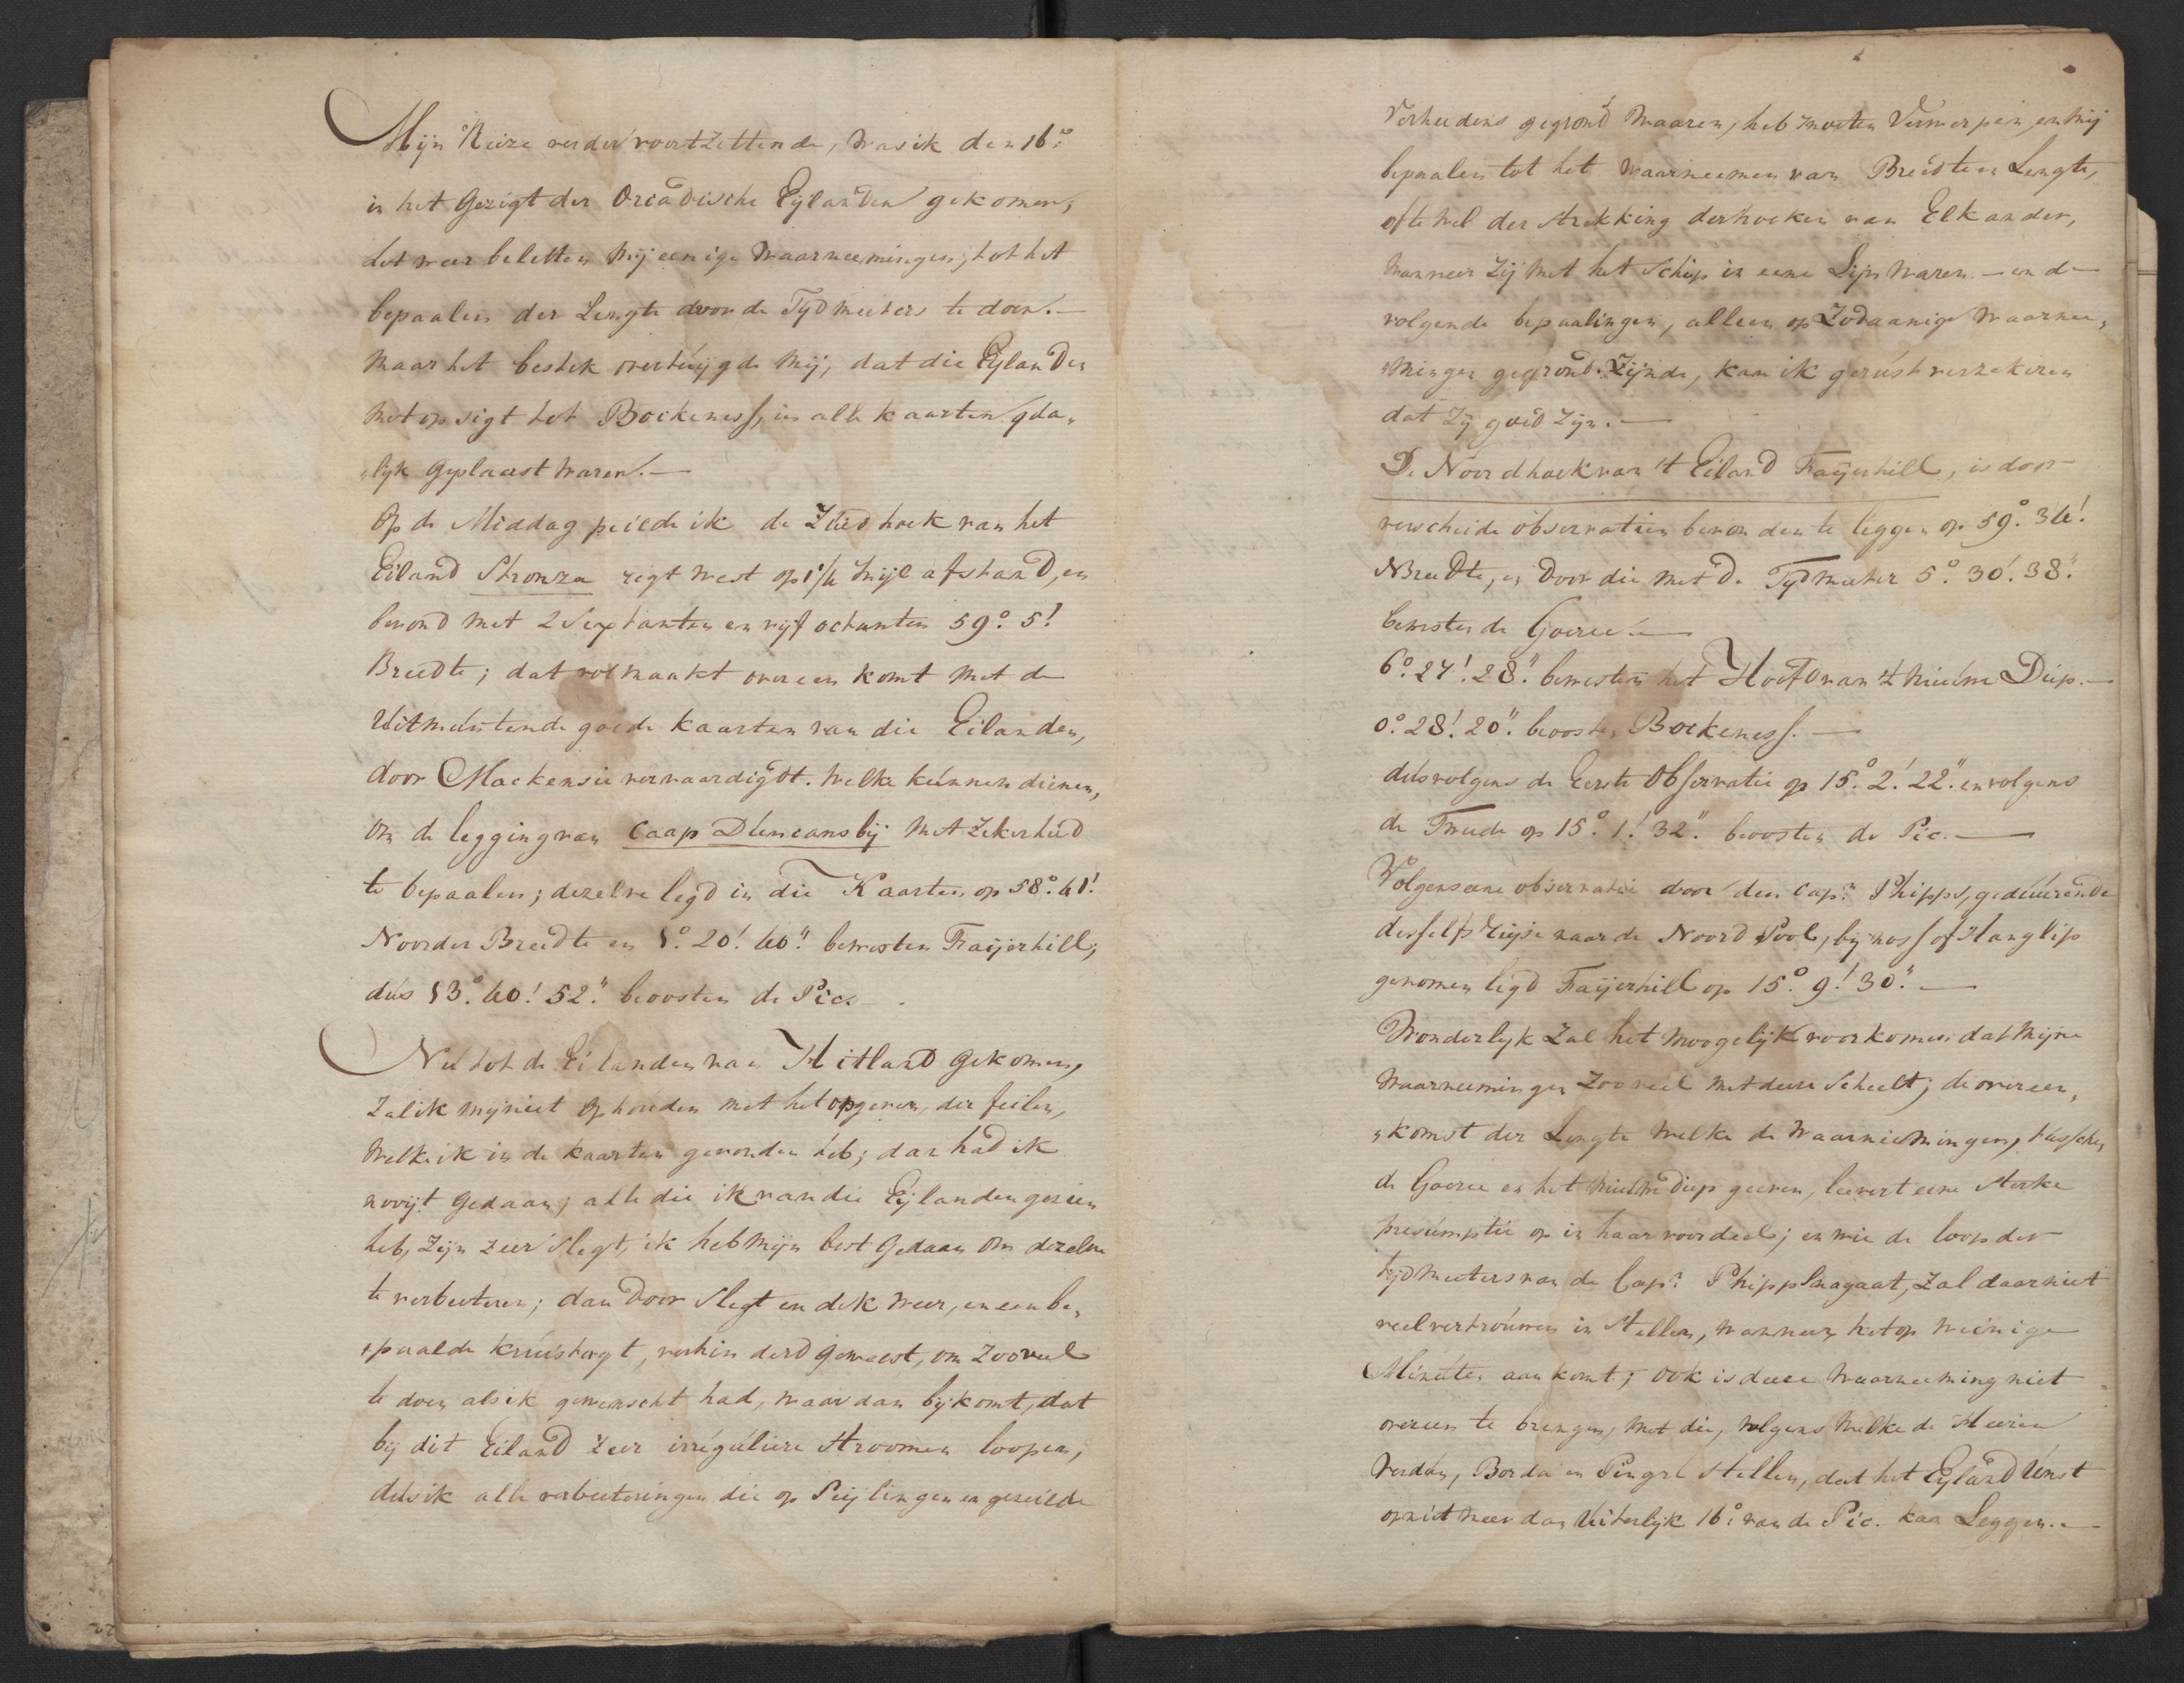 Mijn Reize verder voortzettende, was ik den 16.º
in het Gezigt der Orcadische Eijlanden gekomen,
det weer beletten Mij eenige Waarneemingen, tot het
bepaalen der Lengte door de Tijdmeeters te doen.—
Maar het bestek overtuijgde Mij, dat die Eijlanden
Met opsigt tot Bockeness, in alle kaarten qda„
„lijk Geplaast waren.—
Op de Middag peilde ik de Zuidhoek van het
Eiland Stronza regt West op 1½ Mijl afstand, en
bevond met 2 Sextanten en vijf octanten 59.º 5.'
Breedte; dat volmaakt overeen komt met de
Uitmuntende goede kaarten van die Eilanden,
door Mackensie vervaardigdt. Welke kunnen dienen,
om de legging van Caap Duncansbij Met Zekerheid
te bepaalen; dezelve legd in die Kaarten op 58.º 41.'
Noorder Breedte en 1.º 20.' 40." bewesten Faijerhill;
dus 13.º 40.' 52." beoosten de Pic.—
Nu tot de Eilanden van Hitland Gekomen,
Zal ik mij niet Ophouden met het opgeven, der feilen,
Welke ik in de kaarten gevonden heb; dar had ik
nooijt Gedaan, alle die ik van die Eijlanden gezien
heb, Zijn zeer slegt, ik heb Mijn best Gedaan Om dezelve
te verbeeteren; dan Door slegt en dik Weer, en een be„
„paalde kruistogt, verhinderd Geweest, om Zooveel
te doen als ik gewenscht had, waar dan bijkomt, dat
bij dit Eiland Zeer irréguliere stroomen loopen,
dus ik alle verbeeteringen die op Peijlingen en gezeilde
Verheidens gegrond Waaren, heb moeten Verwerpen, en Mij
bepaalen tot het waarneemen van Breedte en Lengte,
ofte wel der strekking der hoeken van Elkander,
Wanneer Zij Met het Schip in eene Lijn Waren.— en de
volgende bepaalingen, alleen op Zodaanige Waarnee„
„mingen gegrond. Zijnde, kan ik gerust verzekeren
dat Zij goed Zijn.—
De Noordhoek van 't Eiland Faijerhill, is door
verscheide observatien bevonden te leggen op 59.º 34.'
NBreedte, en Door die Met De Tijdmeeter 5.º 30.' 38."
bewesten de Goeree.—
6.º 27.' 28." bewesten het Hoofd van 't Nieuwe Diep.—
0.º 28.' 20." beoosten Bockeness.—
dus volgens de Eerste Observatie op 15.º 2.' 22." en volgens
de Tweede op 15.º 1.' 32." beoosten de Pic.—
Volgens eene observatie door den Capn. Phipps, geduurende
desselfs Reijse naar de Noord Pool, bij noss of Hanglip
genomen legd Faijerhill op 15.º 9.' 30."—
Wonderlyk Zal het Moogelijk voorkomen dat Mijne
Waarneemingen Zooveel Met deese Scheelt; de overeen„
„komst der Lengte Welke de Waarneemingen, tusschen
de Goeree en het Nieuwe diep geeven, leevert eene sterke
presumptie op in haar voordeel; en wie de loop der
tijdmeeters van de Capn. Phipps nagaat, Zal daar niet
veel vertrouwen in Stellen, wanneer het op Weinige
Minuten aankomt; Ook is deese Waarneeming niet
overeen te brengen, Met die, Volgens Welke de Heeren
Verdun, Borda en Pingré stellen, dat het Eijland Unst
op niet Meer dan Uiterlijk 16.º van de Pic. kan Leggen.—